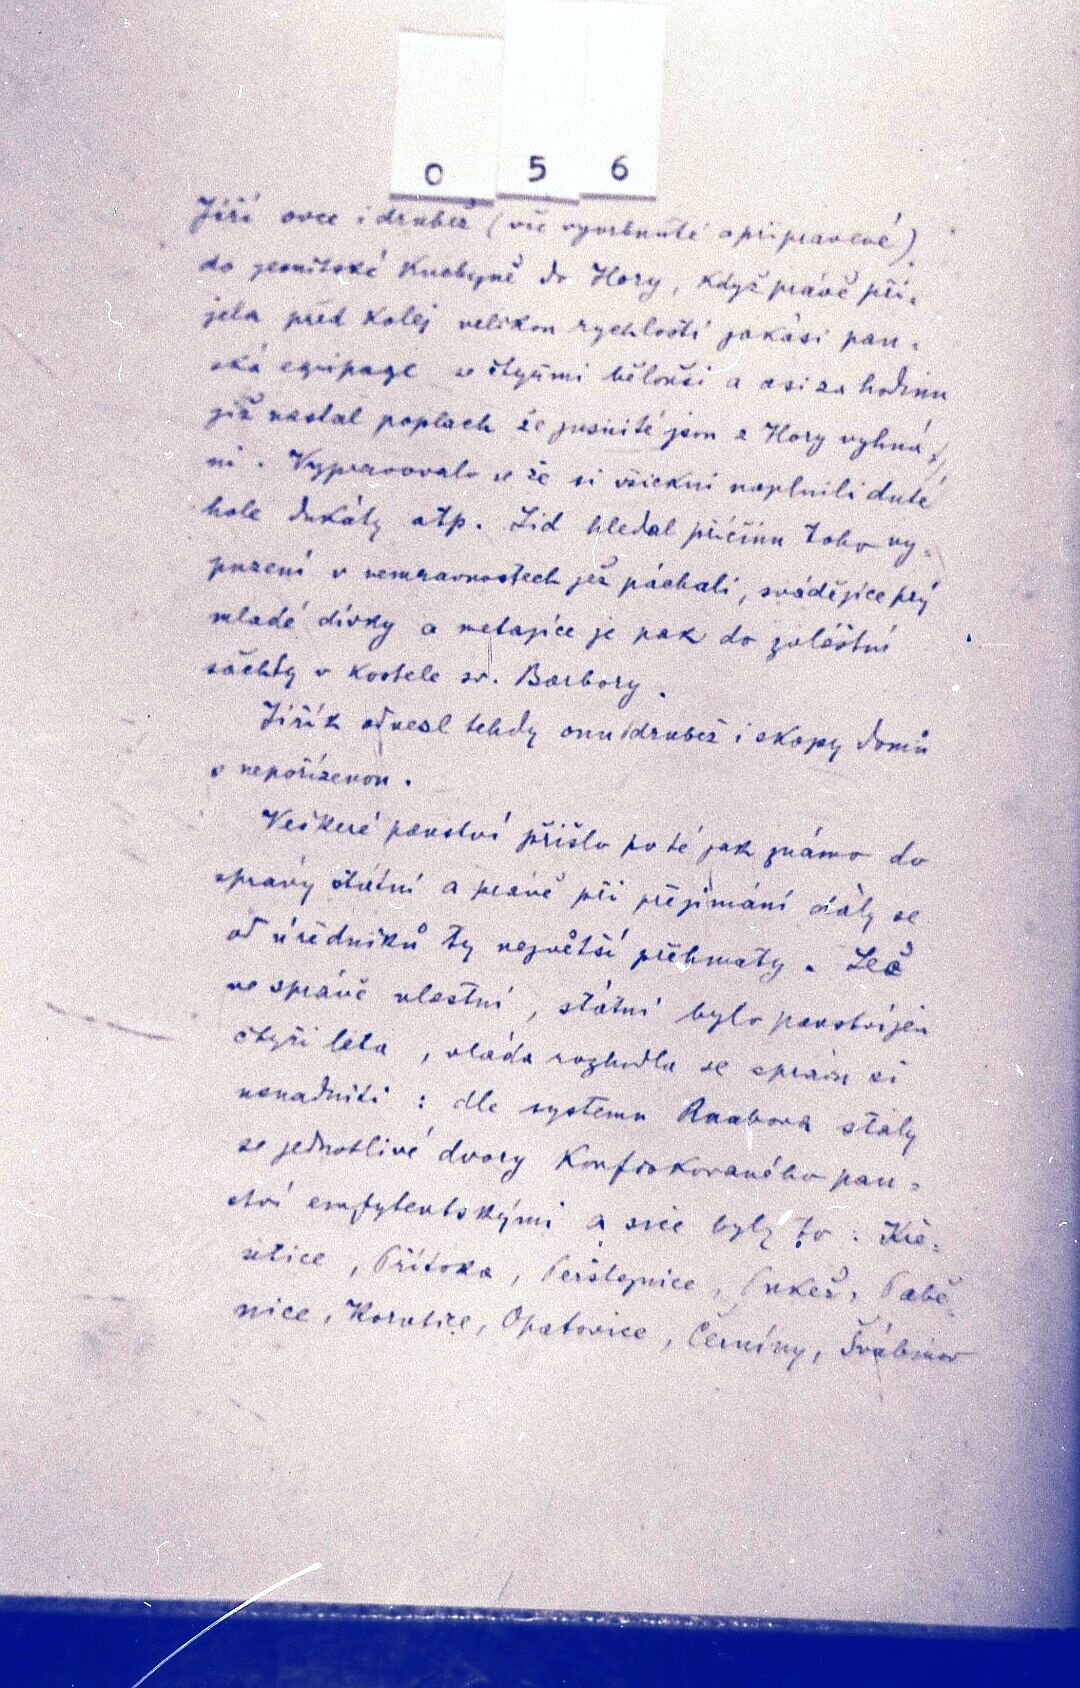 0 5 6
Jiří ovce i drubež (vše vyvrhnuté a připravené)
do jesuitské kuchyně do Hory, když právě při-
jela před kolej velikou rychlostí jakási pan-
ská equipage se čtyřmi bělouši a asi za hodinu
již nastal poplach že jusuité jsou z Hory vyhná-
ni. Vypravovalo se že si všickni naplnili duté
hole dukáty atp. Lid hledal příčinu toho vy-
puzení v nemravnostech jež páchali, svádějíce prý
mladé dívky a metajíce je pak do zvláštní
šachty v kostele sv. Barbory.
Jiřík odnesl tehdy onu drubež i skopy domů
s nepořízenou.
Veškeré panství přišlo po té jak známo do
správy státní a právě při přejímání dály se
od úředníků ty největší přehmaty. Leč
ve správě vlastní, státní bylo panství jen
čtyři léta, vláda rozhodla se správu si
usnadniti: dle systemu Raabova staly
se jednotlivé dvory konfiskovaného pan-
ství emfyteutskými a sice byly to: Kře-
setice, Přítoka, Perštejnice, Pukeš, Pabě-
nice, Horušice, Opatovice, Černíny, Švábinov